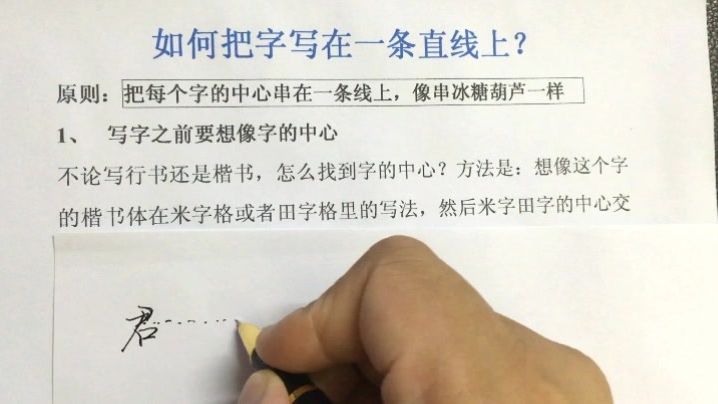 如何把字写在一条直线上？
原则：把每个字的中心串在一条线上，像串冰糖葫芦一样
1、 写字之前要想像字的中心
不论写行书还是楷书，怎么找到字的中心？方法是：想像这个字
的楷书体在米字格或者田字格里的写法，然后米字田字的中心交
君